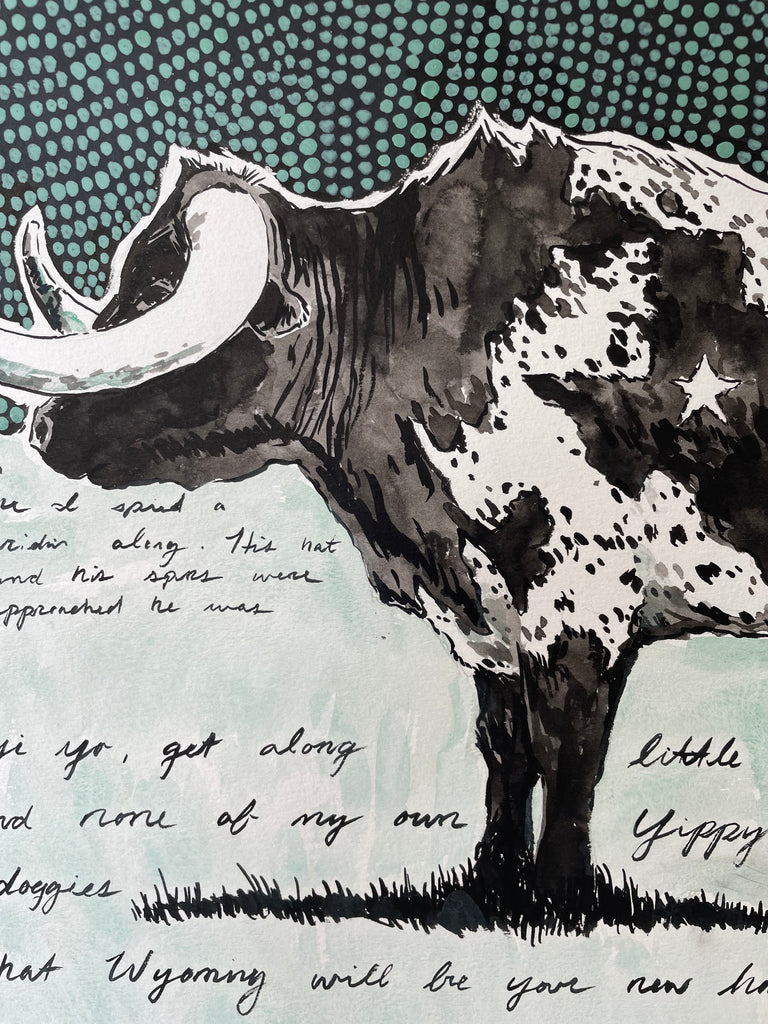 re I spied a
ridin along. His hat
nd his spurs were
pproached he was
yi yo, get along little
nd none of my own Yippy
doggies
hat Wyoming will be your new ho